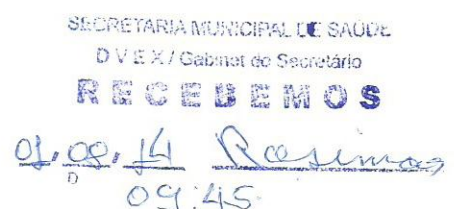 SECRETARIA MUNICIPAL DE SAÚDE
D V E X / Gabinet do Secretário
RECEBEMOS
01,08,14
09:45